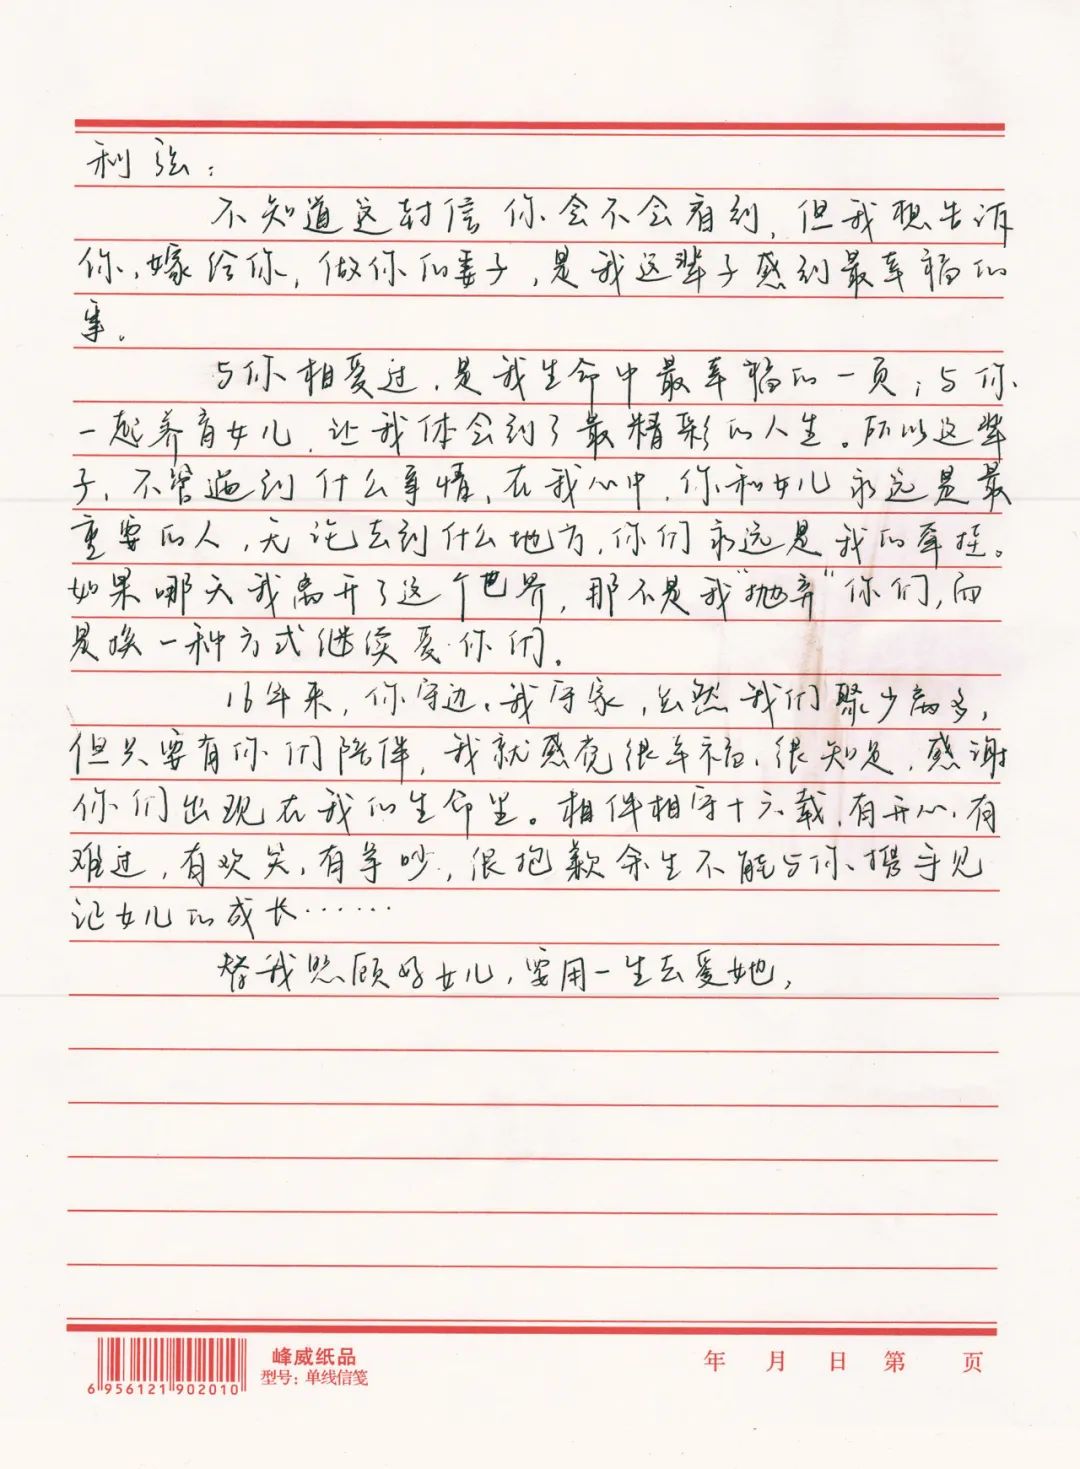 利弦：
不知道这封信你会不会看到，但我想告诉
你，嫁给你，做你的妻子，是我这辈子感到最幸福的
事。
与你相爱过，是我生命中最幸福的一页；与你
一起养育女儿，让我体会到了最精彩的人生。所以这辈
子，不管遇到什么事情，在我心中，你和女儿永远是最
重要的人，无论去到什么地方，你们永远是我的牵挂。
如果哪天我离开了这个世界，那不是我“抛弃”你们，而
是换一种方式继续爱你们。
16年来，你守边，我守家，虽然我们聚少离多，
但只要有你们陪伴，我就感觉很幸福，很知足，感谢
你们出现在我的生命里。相伴相守十六载，有开心，有
难过，有欢笑，有争吵，很抱歉余生不能与你携手见
证女儿的成长……
替我照顾好女儿，要用一生去爱她，
6 956121 902010
峰威纸品
型号：单线信笺
年 月 日 第 页